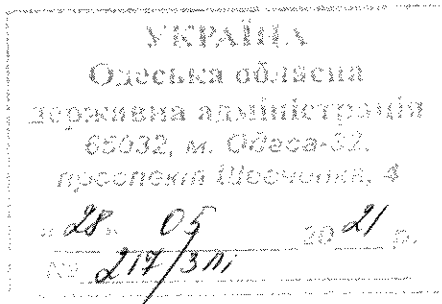 УКРАЇНА
Одеська обласна
державна адміністрація
65032, м. Одеса-32,
проспект Шевченка, 4
"28" 05 2021 р.
№ 217/3пі